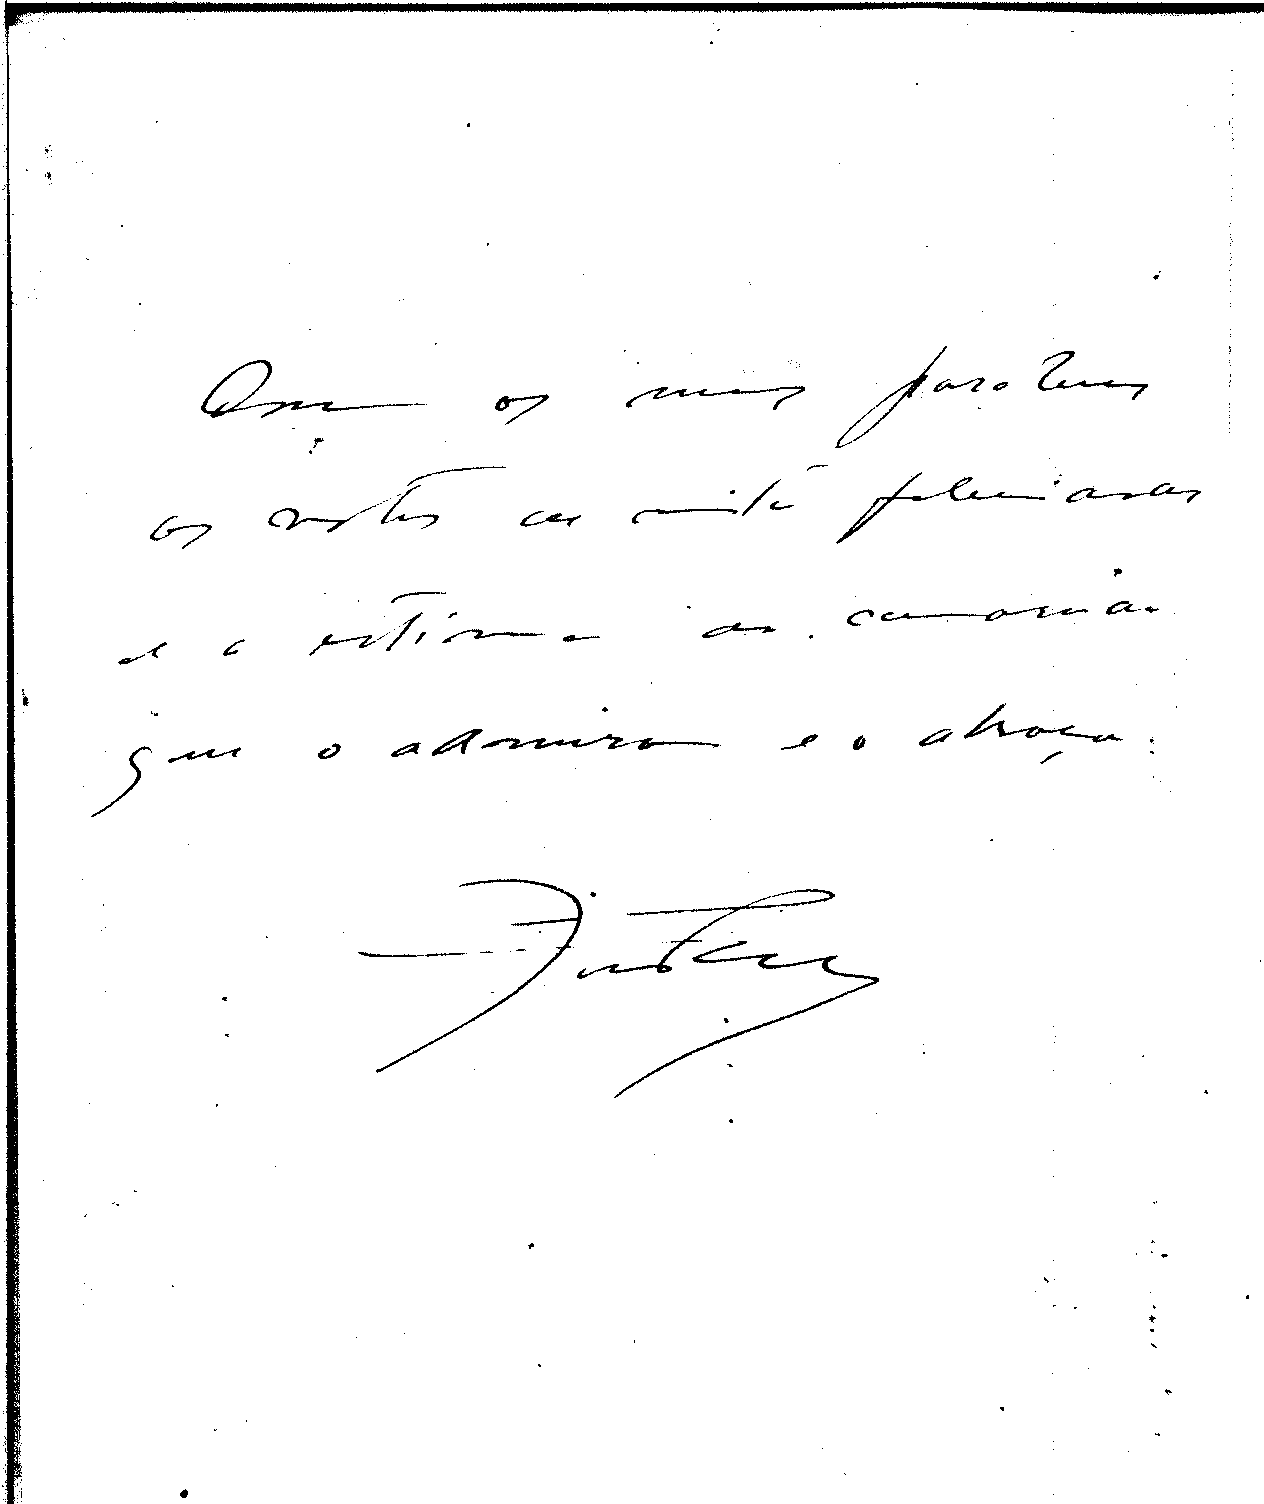 Com os meus parabens
os votos de muita felicidade
e a estima do camarada
que o admira e o abraça.